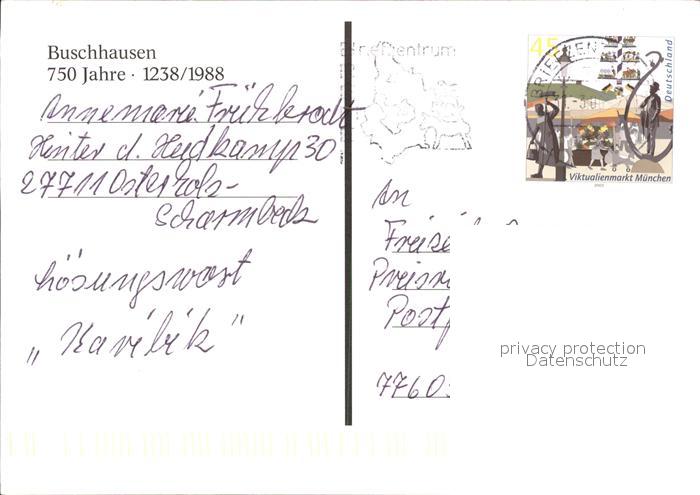 Buschhausen
750 Jahre · 1238/1988
Annemarie
Hinter d. Heidkamp 30
27711 Osterholz-
Scharmbeck
Lösungswort
„Karibik"
Briefzentrum
BRIEFZEN
45
Deutschland
Viktualienmarkt München
2003
An
Postf
7760
privacy protection
Datenschutz